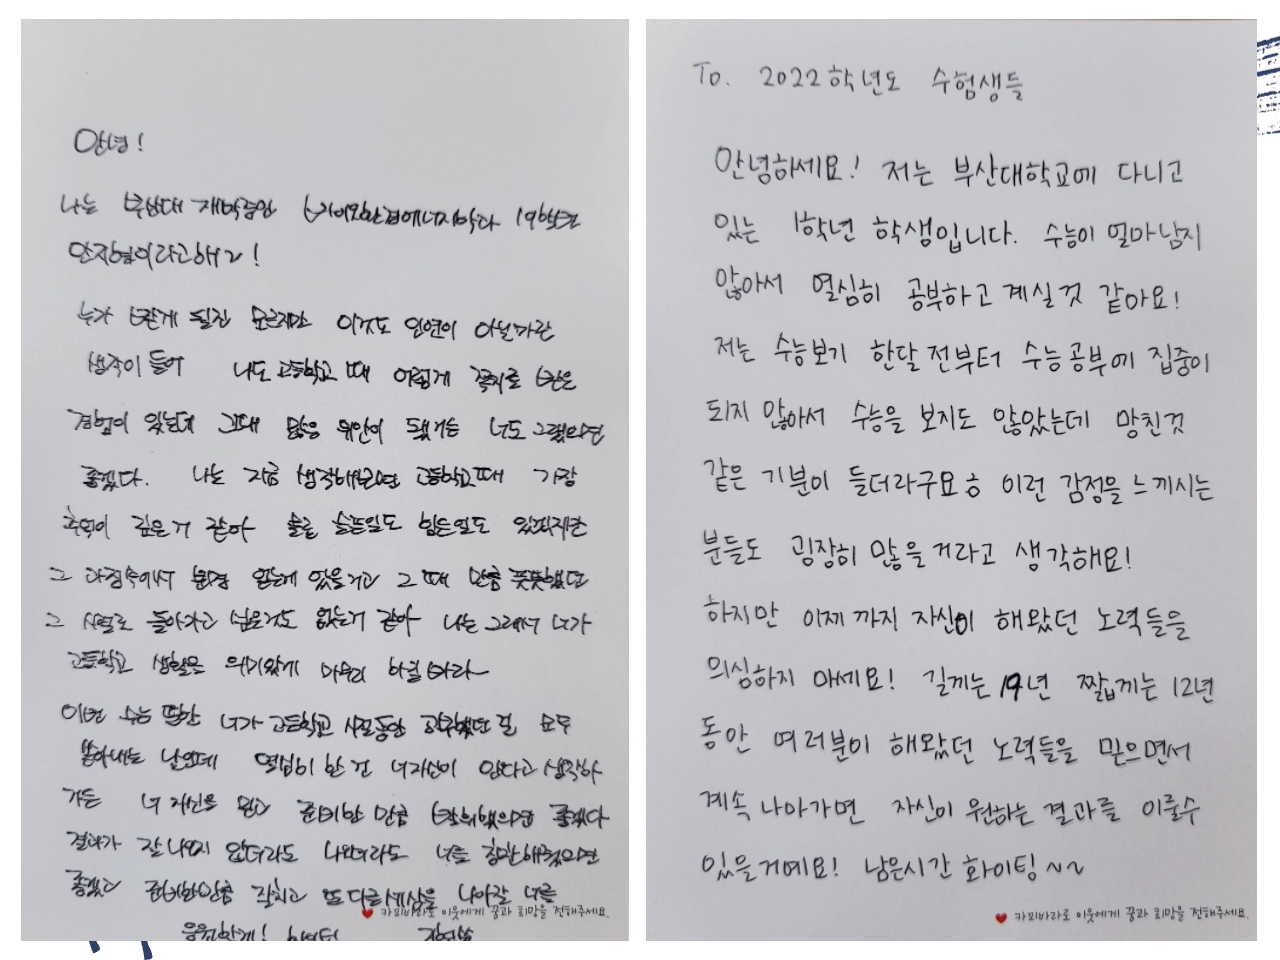 안녕!
나는 부산대 재학중인 바이오환경에너지학과 19학번
안지형이라고해~!
누가 받게 될진 모르지만 이것도 인연이 아닐까란
생각이 들어 나도 고등학교 때 이렇게 쪽지로 받은
경험이 있는데 그때 많은 위안이 됐거든 너도 그랬으면
좋겠다. 나는 지금 생각해보면 고등학교때 가장
추억이 깊은거 같아 물론 슬픈일도 힘든일도 있겠지만
그 아침속에서 분명 얻는게 있을거고 그 때 만큼 풋풋했던
그 시절로 돌아가고 싶은거도 없는거 같아 나는 그래서 너가
고등학교 생활은 의미있게 마무리 하길 바라~
이번 수능 딱한 너가 고등학교 시절동안 공부했던 걸 모두
쏟아내는 날인데 열심히 한 건 너자신이 안다고 생각하
거든 너 자신을 믿고 준비한 만큼 발휘했으면 좋겠다
결과가 잘 나오지 않더라도 나오더라도 너를 칭찬해줬으면
좋겠고 준비한만큼 잘치고 또 다른세상을 나아갈 너를
응원할게! 화이팅
♥ 카피바라로 이웃에게 꿈과 희망을 전해주세요.
To. 2022학년도 수험생들
안녕하세요! 저는 부산대학교에 다니고
있는 1학년 학생입니다. 수능이 얼마남지
않아서 열심히 공부하고 계실것 같아요!
저는 수능보기 한달 전부터 수능공부에 집중이
되지 않아서 수능을 보지도 않았는데 망친것
같은 기분이 들더라구요ㅎ 이런 감정을 느끼시는
분들도 굉장히 많을거라고 생각해요!
하지만 이제까지 자신이 해왔던 노력들을
의심하지 마세요! 길게는 19년 짧게는 12년
동안 여러분이 해왔던 노력들을 믿으면서
계속 나아가면 자신이 원하는 결과를 이룰수
있을거예요! 남은시간 화이팅~~
♥ 카피바라로 이웃에게 꿈과 희망을 전해주세요.